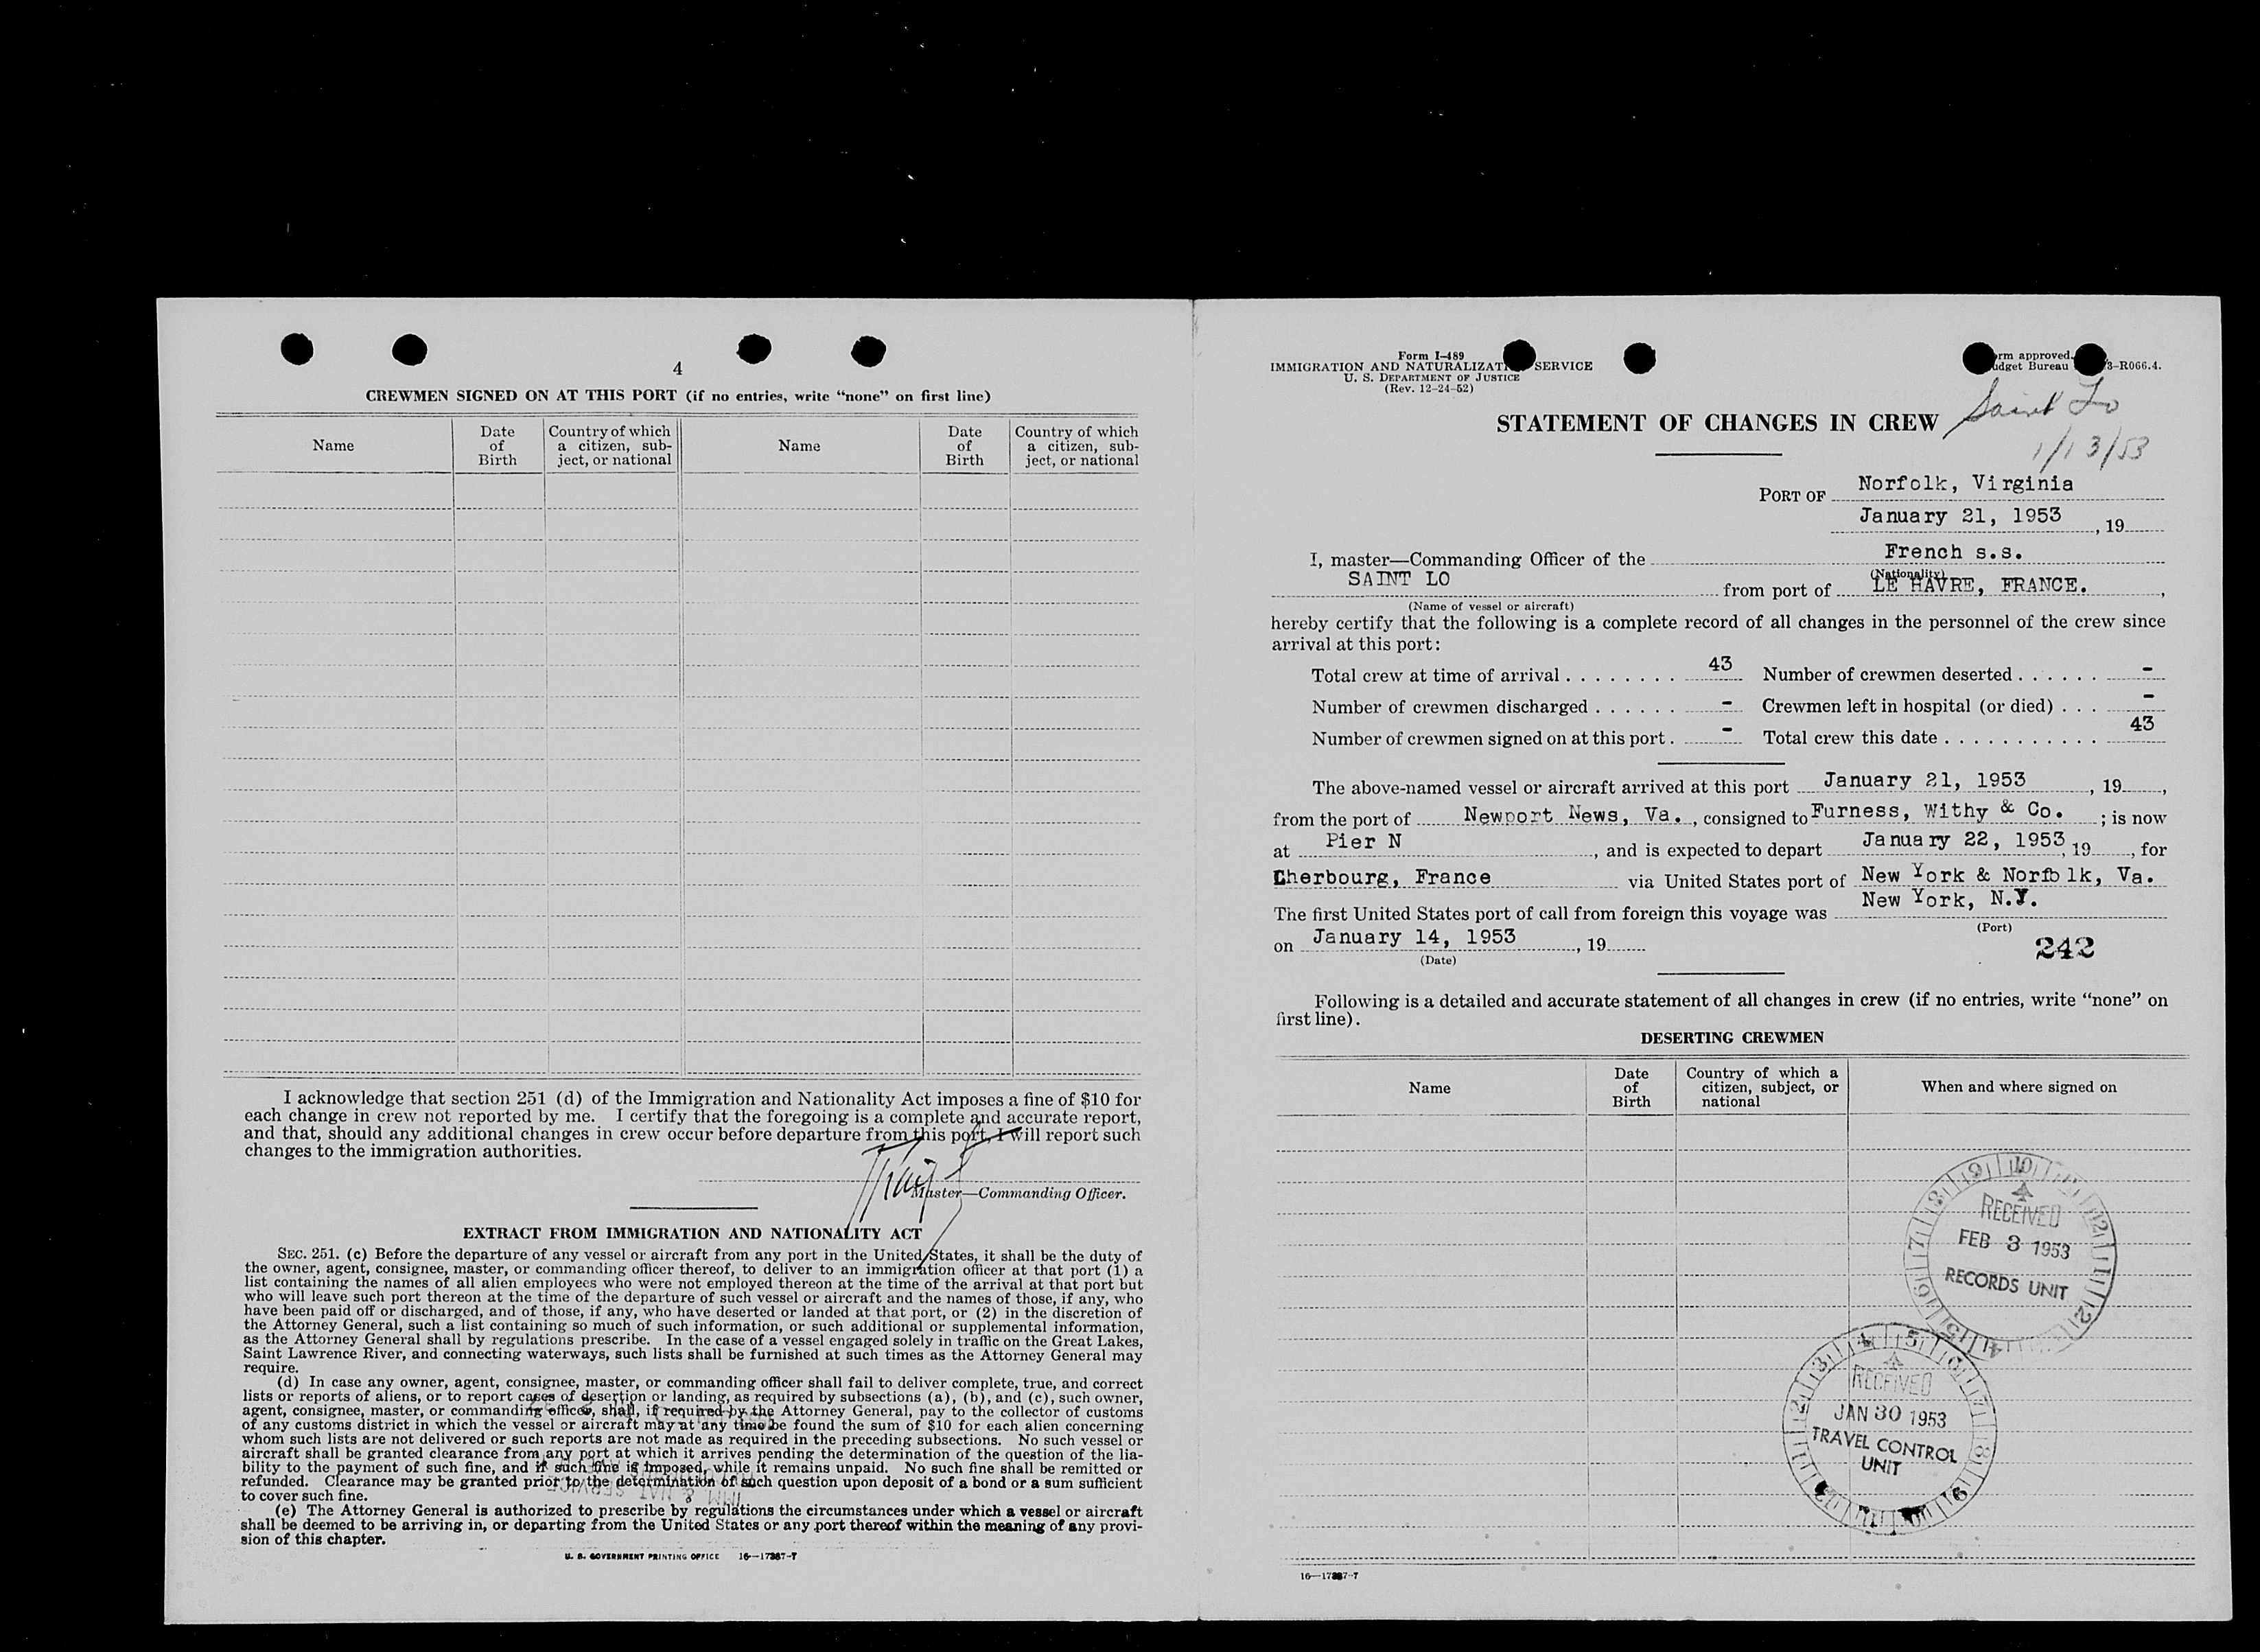 4
CREWMEN SIGNED ON AT THIS PORT (if no entries, write “none” on first line)
Name
Date of Birth
Country of which a citizen, sub-ject, or national
Name
Date of Birth
Country of which a citizen, sub-ject, or national
I acknowledge that section 251 (d) of the Immigration and Nationality Act imposes a fine of $10 for
each change in crew not reported by me. I certify that the foregoing is a complete and accurate report,
and that, should any additional changes in crew occur before departure from this port, I will report such
changes to the immigration authorities.
Master—Commanding Officer.
EXTRACT FROM IMMIGRATION AND NATIONALITY ACT
SEC. 251. (c) Before the departure of any vessel or aircraft from any port in the United States, it shall be the duty of
the owner, agent, consignee, master, or commanding officer thereof, to deliver to an immigration officer at that port (1) a
list containing the names of all alien employees who were not employed thereon at the time of the arrival at that port but
who will leave such port thereon at the time of the departure of such vessel or aircraft and the names of those, if any, who
have been paid off or discharged, and of those, if any, who have deserted or landed at that port, or (2) in the discretion of
the Attorney General, such a list containing so much of such information, or such additional or supplemental information,
as the Attorney General shall by regulations prescribe. In the case of a vessel engaged solely in traffic on the Great Lakes,
Saint Lawrence River, and connecting waterways, such lists shall be furnished at such times as the Attorney General may
require.
(d) In case any owner, agent, consignee, master, or commanding officer shall fail to deliver complete, true, and correct
lists or reports of aliens, or to report cases of desertion or landing, as required by subsections (a), (b), and (c), such owner,
agent, consignee, master, or commanding officer, shall, if required by the Attorney General, pay to the collector of customs
of any customs district in which the vessel or aircraft may at any time be found the sum of $10 for each alien concerning
whom such lists are not delivered or such reports are not made as required in the preceding subsections. No such vessel or
aircraft shall be granted clearance from any port at which it arrives pending the determination of the question of the lia-
bility to the payment of such fine, and if such fine is imposed, while it remains unpaid. No such fine shall be remitted or
refunded. Clearance may be granted prior to the determination of such question upon deposit of a bond or a sum sufficient
to cover such fine.
(e) The Attorney General is authorized to prescribe by regulations the circumstances under which a vessel or aircraft
shall be deemed to be arriving in, or departing from the United States or any port thereof within the meaning of any provi-
sion of this chapter.
U. S. GOVERNMENT PRINTING OFFICE 16—17387-7
Form I-489
IMMIGRATION AND NATURALIZATI SERVICE
U. S. DEPARTMENT OF JUSTICE
(Rev. 12-24-52)
rm approved.
udget Bureau 3-R066.4.
Saint Lo
1/13/53
STATEMENT OF CHANGES IN CREW
PORT OF Norfolk, Virginia
January 21, 1953, 19
I, master—Commanding Officer of the French s.s.
(Nationality)
SAINT LO from port of LE HAVRE, FRANCE.,
(Name of vessel or aircraft)
hereby certify that the following is a complete record of all changes in the personnel of the crew since
arrival at this port:
Total crew at time of arrival 43 Number of crewmen deserted -
Number of crewmen discharged - Crewmen left in hospital (or died) -
Number of crewmen signed on at this port - Total crew this date 43
The above-named vessel or aircraft arrived at this port January 21, 1953, 19,
from the port of Newport News, Va., consigned to Furness, Withy & Co. ; is now
at Pier N, and is expected to depart January 22, 1953, 19, for
Cherbourg, France via United States port of New York & Norfolk, Va.
The first United States port of call from foreign this voyage was New York, N.Y.
(Port)
on January 14, 1953, 19
(Date)
242
Following is a detailed and accurate statement of all changes in crew (if no entries, write “none” on
first line).
DESERTING CREWMEN
Name
Date of Birth
Country of which a citizen, subject, or national
When and where signed on
RECEIVED
FEB 3 1953
RECORDS UNIT
RECEIVED
JAN 30 1953
TRAVEL CONTROL
UNIT
16—17387-7